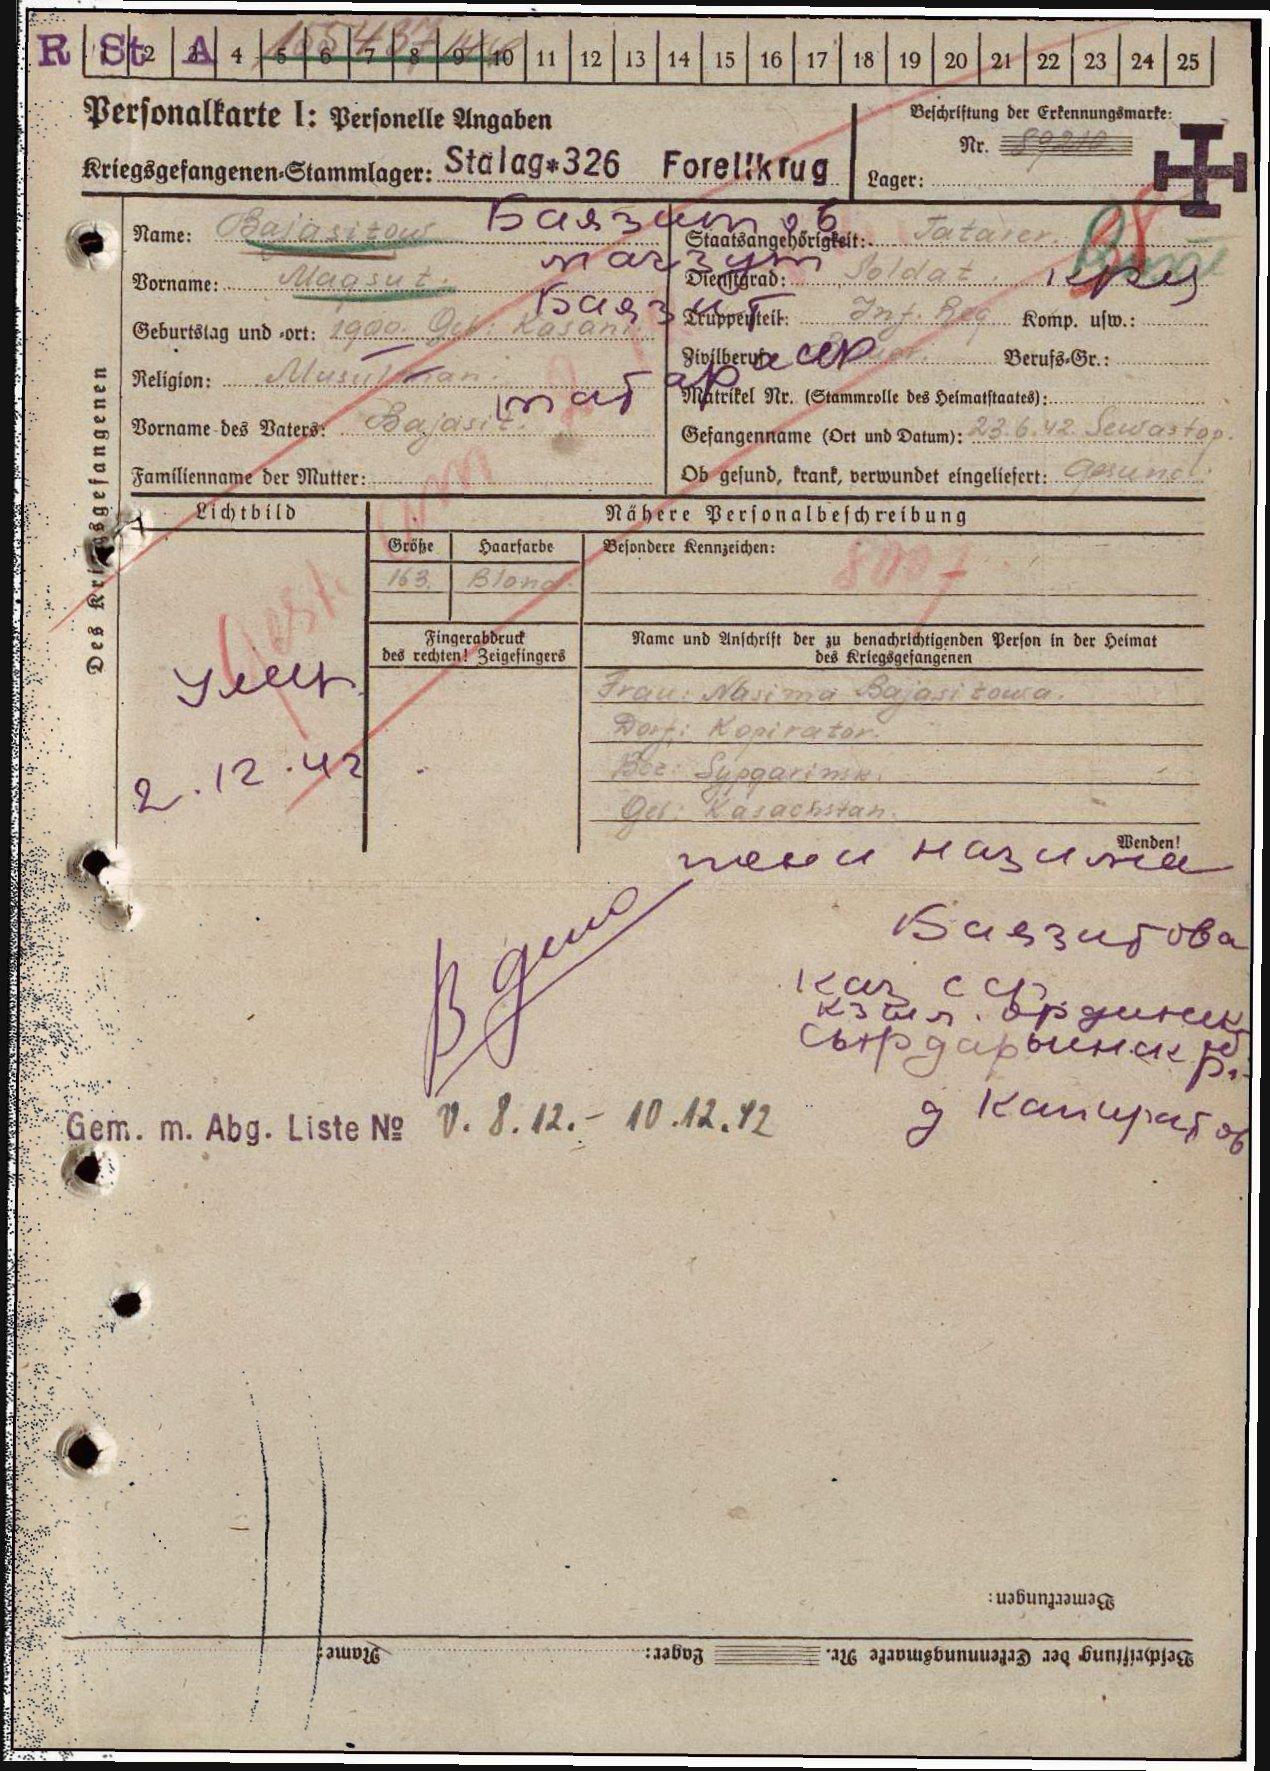 R St A
1 2 3 4 5 6 7 8 9 10 11 12 13 14 15 16 17 18 19 20 21 22 23 24 25
155437
Personalkarte I: Personelle Angaben
Beschriftung der Erkennungsmarke:
Nr. 89210
Kriegsgefangenen-Stammlager: Stalag*326 Forellkrug
Lager:
Des Kriegsgefangenen
Name: Bajasitow Баязитов
Staatsangehörigkeit: Tatarer.
Vorname: Magsut. магзут
Dienstgrad: Soldat.
Geburtstag und -ort: 1900. Geb: Kasani. Баязит
Truppenteil: Inf. Reg Komp. usw.:
Zivilberuf: Berufs-Gr.:
Religion: Musulman. татар
Matrikel Nr. (Stammrolle des Heimatstaates):
Vorname des Vaters: Bajasit.
Gefangenname (Ort und Datum): 23.6.42 Sewastop.
Familienname der Mutter:
Ob gesund, krank, verwundet eingeliefert: Gesund.
Lichtbild
Nähere Personalbeschreibung
Größe Haarfarbe
Besondere Kennzeichen:
163. Blond.
Gest.
Fingerabdruck
des rechten! Zeigefingers
Name und Anschrift der zu benachrichtigenden Person in der Heimat
des Kriegsgefangenen
Frau: Nasima Bajasitowa.
Dorf: Kopirator.
Bez: Sypgarinsk.
Geb: Kasachstan.
умер
2.12.42
Wenden!
жени назима
Баязитова
каз сср
кзыл. ординск
сырдарьинск р.
д Капиратов
В дело
Gem. m. Abg. Liste № v. 8.12.- 10.12.42
Bemerkungen:
Beschriftung der Erkennungsmarke Nr. Lager: Name: